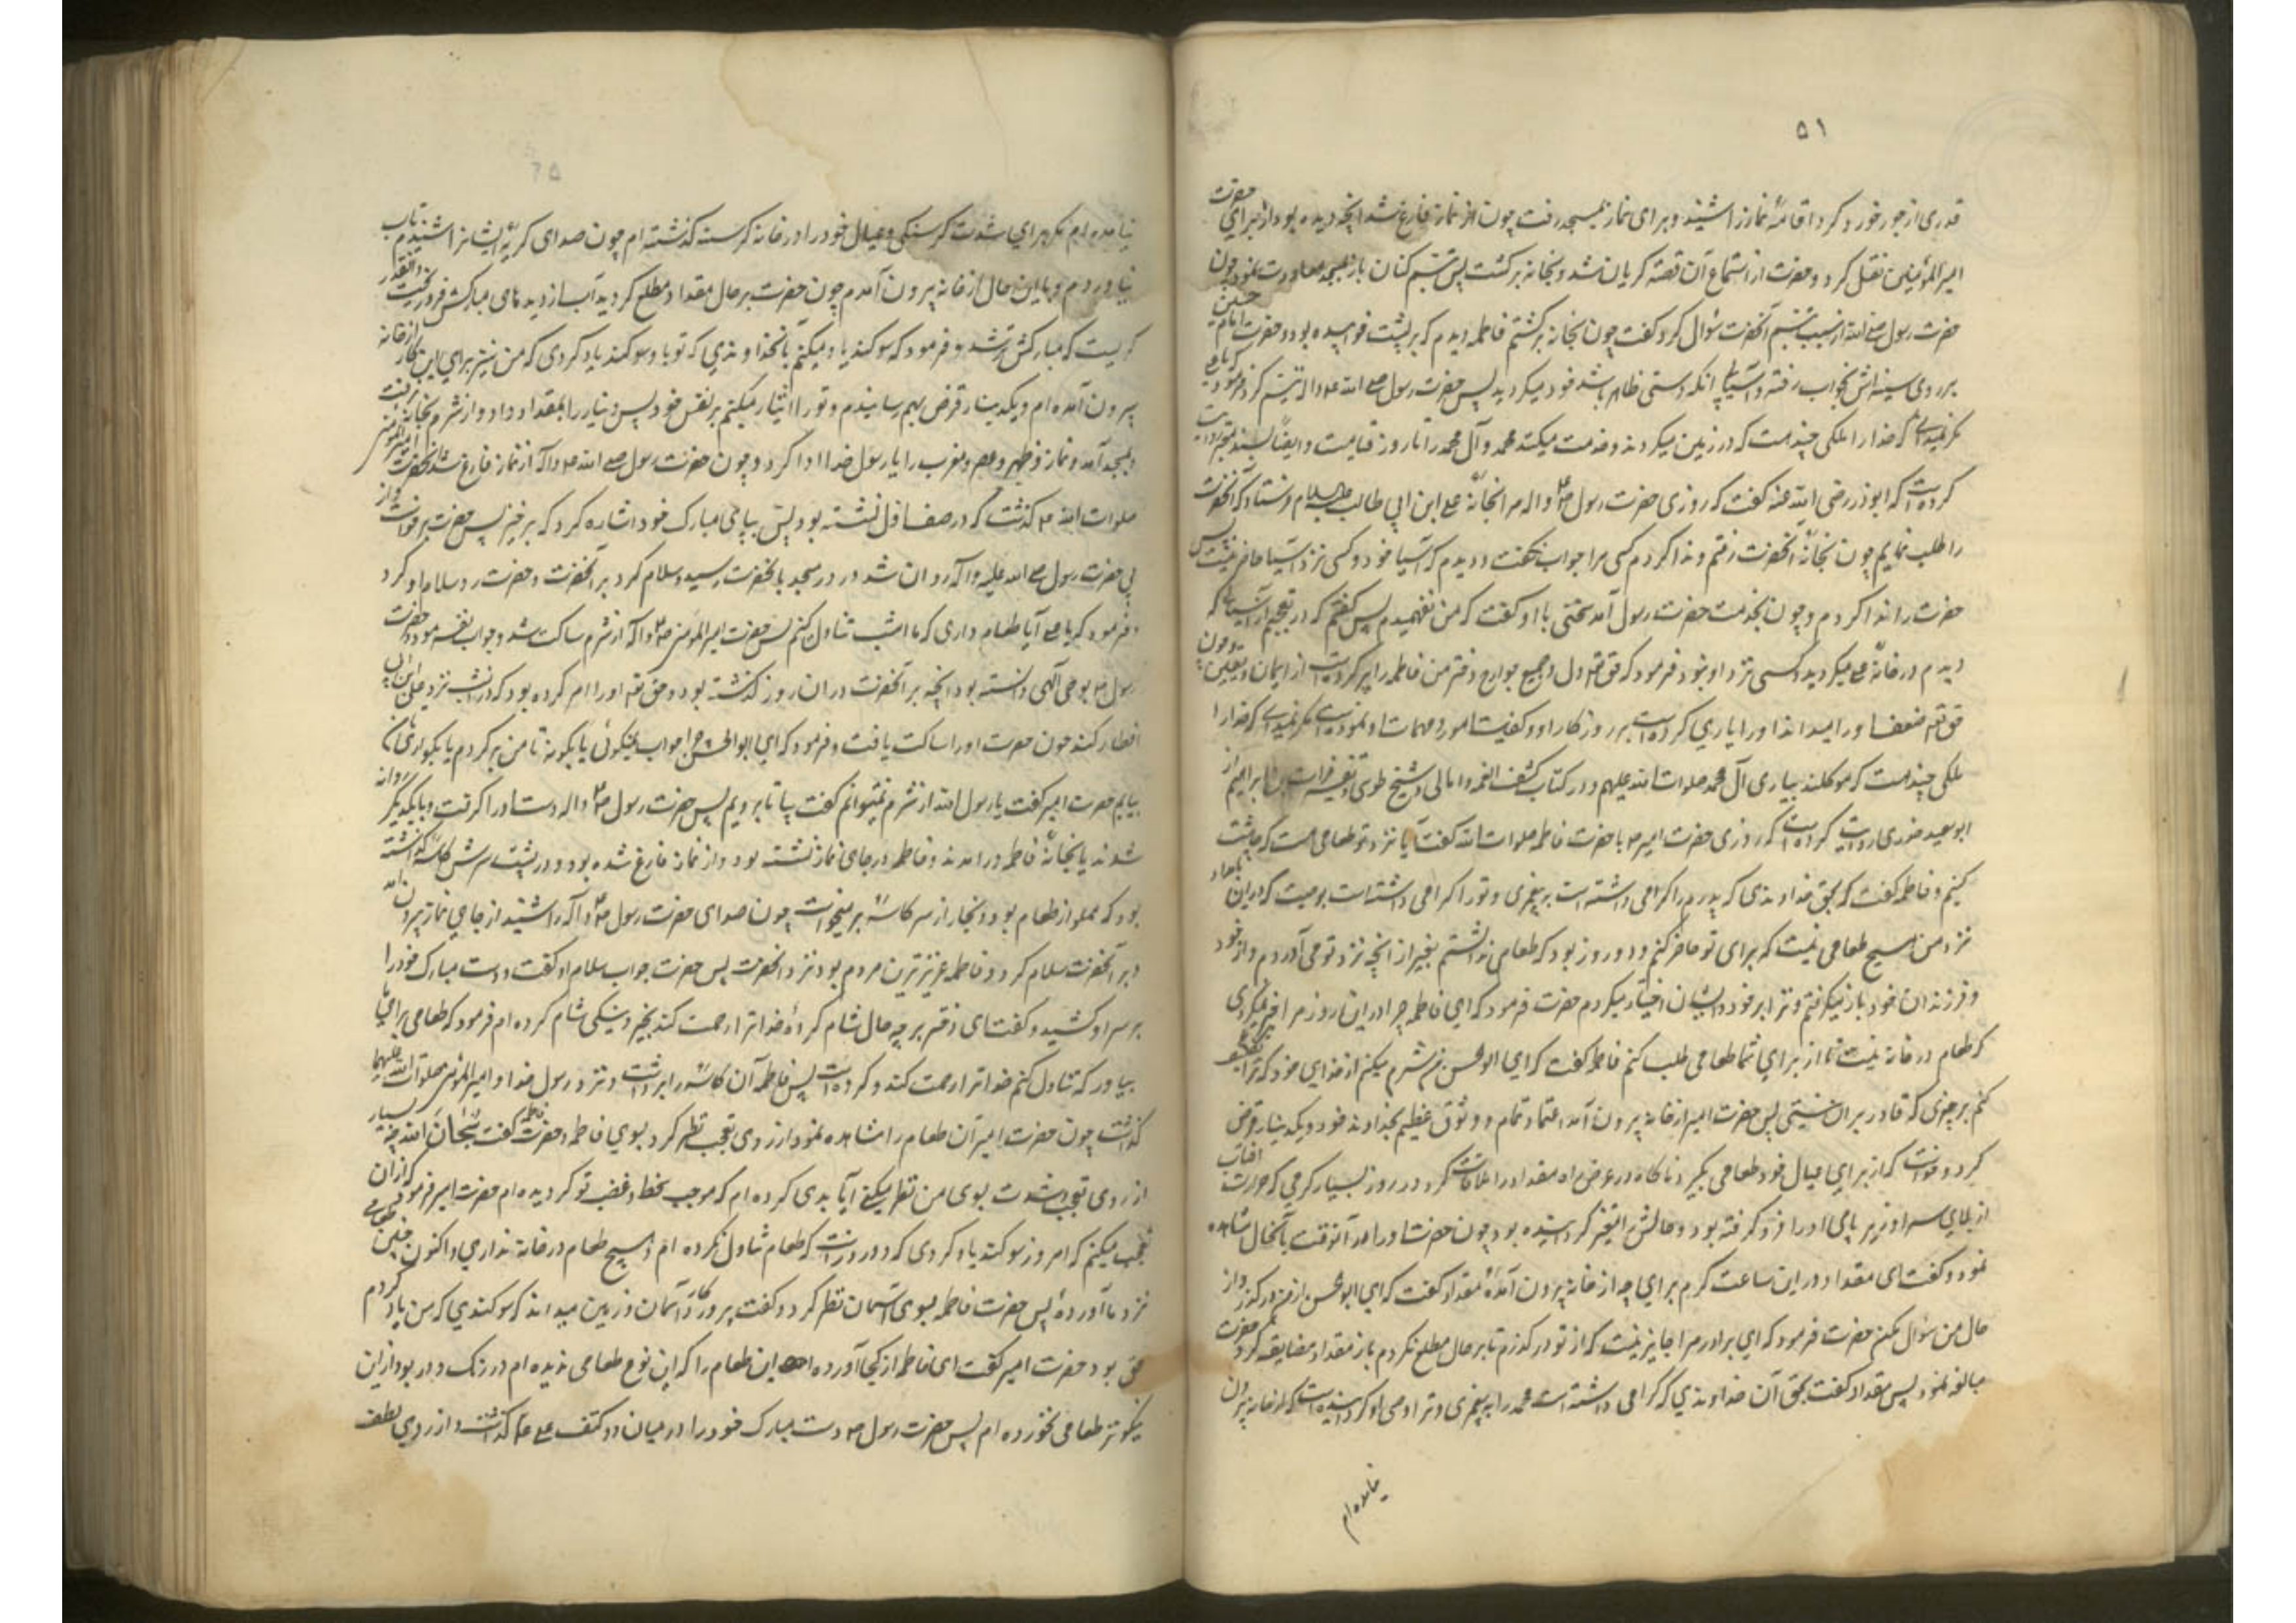 ۵۱
قدری از جو خورد کرد اقامهٔ نماز را شنید و برای نماز بمسجد رفت چون از نماز فارغ شد آنچه دیده بود از برای حضرت
امیرالمؤمنین نقل کرد و حضرت از استماع آن قصه گریان شد و بخانه برگشت پس تبسم کنان باز بمسجد معاودت نمود چون
حضرت رسول صلی الله از سبب تبسم آنحضرت سؤال کرد گفت چون بخانه برگشتم فاطمه دیدم که بر پشت خوابیده بود و حضرت امام حسین
بر روی سینه‌اش بخواب رفته و آسیا بی آنکه دستی ظاهر باشد خود میگردید پس حضرت رسول صلی الله ع واله تبسم کرد و فرمود یا علی
مگر نمیدانی که خدا را ملکی چند هست که در زمین میگردند و خدمت میکنند محمد و آل محمد را تا روز قیامت و ایضًا بسند معتبر روایت
کرده است که ابوذر رضی الله عنه گفت که روزی حضرت رسول ص واله مرا بخانهٔ علی ابن ابی طالب علیه السلام فرستاد که آنحضرت
را طلب نمایم چون بخانهٔ آنحضرت رفتم و ندا کردم کسی مرا جواب نگفت و دیدم که آسیا خود و کسی نزد آسیا حاضر نیست پس
حضرت را ندا کردم و چون بخدمت حضرت رسول آمد سخنی با او گفت که من نفهمیدم پس گفتم که در تعجبم از آسیائی که
دیدم در خانهٔ علی میگردید و کسی نزد او نبود فرمود که حق تعم دل و جمیع جوارح دختر من فاطمه را پر کرده است از ایمان و یقین و چون
حق تعم ضعف او را میداند او را یاری کرده است بر روزگار او و کفایت امور و مهمات او نموده است مگر نمیدانی که خدا را
ملکی چند هست که موکلند بیاری آل محمد صلوات الله علیهم و در کتاب کشف الغمه و امالی شیخ طوسی و تفسیر فرات بن ابراهیم از
ابو سعید خدری روایت کرده است که روزی حضرت امیر ع با حضرت فاطمه صلوات الله گفت آیا نزد تو طعامی هست که چاشت
کنیم و فاطمه گفت که بحق خداوندی که پدرم را گرامی داشته است به پیغمبری و تو را گرامی داشته است بوصیت که در این بامداد
نزد من هیچ طعامی نیست که برای تو حاضر کنم و دو روز بود که طعامی نداشتم بغیر از آنچه نزد تو می آوردم و از خود
و فرزندان خود باز میگرفتم و تو را بر خود و ایشان اختیار میکردم حضرت فرمود که ای فاطمه چرا در این روز مرا خبر نکردی
که طعام در خانه نیست تا از برای شما طعامی طلب کنم فاطمه گفت که ای ابوالحسن من شرم میکنم از خدای خود که ترا تکلیف
کنم بر چیزی که قادر بر آن نیستی پس حضرت امیر از خانه بیرون آمد با اعتماد تمام و وثوق عظیم بخداوند خود و یکدینار قرض
کرد و خواست که از برای عیال خود طعامی بگیرد ناگاه در عرض راه مقداد را ملاقات کرد در روز بسیار گرمی که حرارت آفتاب
از بالای سر او و زیر پای او را فرو گرفته بود و حالش را متغیر گردانیده بود چون حضرت او را در آنوقت بآنحال مشاهده
نمود و گفت ای مقداد در این ساعت گرم برای چه از خانه بیرون آمدهٔ مقداد گفت که ای ابوالحسن از من درگذر و از
حال من سؤال مکن حضرت فرمود که ای برادر مرا جایز نیست که از تو درگذرم تا بر حال مطلع نگردم باز مقداد مضایقه کرد و حضرت
مبالغه نمود پس مقداد گفت بحق آن خداوندی که گرامی داشته است محمد را به پیغمبری و ترا وصی او گردانیده است که از خانه بیرون
نیامده‌ام
۶۵
نیامده‌ام مگر برای شدت گرسنگی و عیال خود را در خانه گرسنه گذشته‌ام چون صدای گریهٔ ایشانرا شنیدم تاب
نیاوردم و باین حال از خانه بیرون آمدم چون حضرت بر حال مقداد مطلع گردید آب از دیده‌های مبارکش فرو ریخت و آنقدر
گریست که مبارکش تر شد و فرمود که سوگند یاد میکنم بآنخداوندی که تو باو سوگند یاد کردی که من نیز برای این کار از خانه
بیرون آمده‌ام و یکدینار قرض بهم رسانیدم و تو را ایثار میکنم بر نفس خود پس دینار را بمقداد داد و از شرم بخانه نرفت
و بمسجد آمد و نماز و ظهر و عصر و مغرب را با رسول خدا ادا کرد و چون حضرت رسول صلی الله ع واله از نماز فارغ شد بحضرت امیرالمؤمنین
صلوات الله ع گذشت که در صف اول نشسته بود پس بپای مبارک خود اشاره کرد که برخیز پس حضرت برخواست و از
پی حضرت رسول صلی الله علیه واله روان شد در در مسجد بآنحضرت رسید و سلام کرد بر آنحضرت و حضرت رد سلام او کرد
و فرمود که یا علی آیا طعام داری که ما امشب تناول کنم پس حضرت امیرالمؤمنین ص واله از شرم ساکت شد و جواب نفرمود و حضرت
رسول ص بوحی الهی دانسته بود آنچه بر آنحضرت در ان روز گذشته بود و حق تعم او را امر کرده بود که در انشب نزد علی ابن ابی
افطار کند چون حضرت او را ساکت یافت و فرمود که ای ابوالحسن چرا جواب نمیگوئی یا بگو نه تا من برگردم یا بگو اری تا
بیایم حضرت امیر گفت یا رسول الله از شرم نمیتوانم گفت بیا تا برویم پس حضرت رسول ص واله دست او را گرفت و بایکدیگر روانه
شدند تا بخانهٔ فاطمه در امدند و فاطمه در جای نماز نشسته بود و از نماز فارغ شده بود و در پشت سرش کاسهٔ گذاشته
بود که مملو از طعام بود و بخار از سر کاسهٔ بر میخواست چون صدای حضرت رسول ص واله را شنید از جای نماز بیرون آمد
و بر آنحضرت سلام کرد و فاطمه عزیزترین مردم بود نزد آنحضرت پس حضرت جواب سلام او گفت و دست مبارک خود را
بر سر او کشید و گفت ای دختر بر چه حال شام کردهٔ خدا ترا رحمت کند بخیر و نیکی شام کرده‌ام فرمود که طعامی برای ما
بیاور که تناول کنم خدا ترا رحمت کند و کرده است پس فاطمه آن کاسه را برداشت و نزد رسول خدا و امیرالمؤمنین صلوات الله علیهما
گذاشت چون حضرت امیر آن طعام را مشاهده نمود از روی تعجب نظر کرد بسوی فاطمه و حضرت فاطمه گفت سُبْحَانَ الله چه بسیار
از روی تعجب و شدت بسوی من نظر میکنی آیا بدی کرده‌ام که موجب سخط و غضب تو گردیده‌ام حضرت امیر فرمود که از آن
تعجب میکنم که امروز سوگند یاد کردی که دو روز است که طعام تناول نکرده‌ام و هیچ طعام در خانه نداری و اکنون چنین طعامی
نزد ما آوردهٔ پس حضرت فاطمه بسوی آسمان نظر کرد و گفت پروردگار آسمان و زمین میداند که سوگندی که من یاد کردم
حق بود حضرت امیر گفت ای فاطمه از کجا آورده این طعام را که این نوع طعامی ندیده‌ام در رنگ و در بو و از این
نیکوتر طعامی نخورده‌ام پس حضرت رسول ص دست مبارک خود را در میان دو کتف علی ع گذاشت و از روی لطف